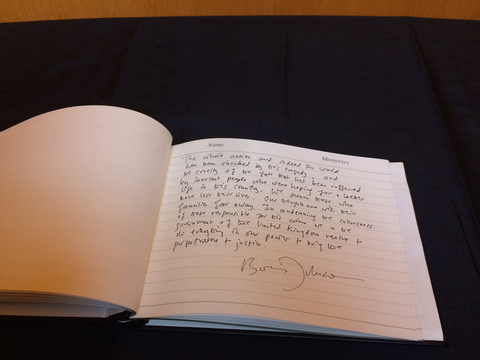 Name Memories
The whole nation and indeed the world
has been shocked by this tragedy and
the cruelty of the fate that has been suffered
by innocent people who were hoping for a better
life in this country. We mourn those who
have lost their lives. Our thoughts are with their
families far away. In condemning the callousness
of those responsible for this crime we in the
Government of the United Kingdom resolve to
do everything in our power to bring the
perpetrators to justice.
Boris Johnson